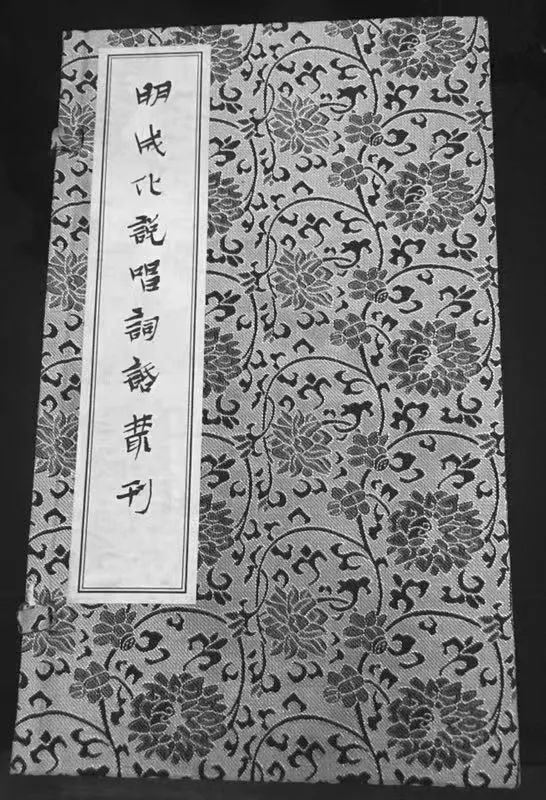 明成化説唱詞話叢刊